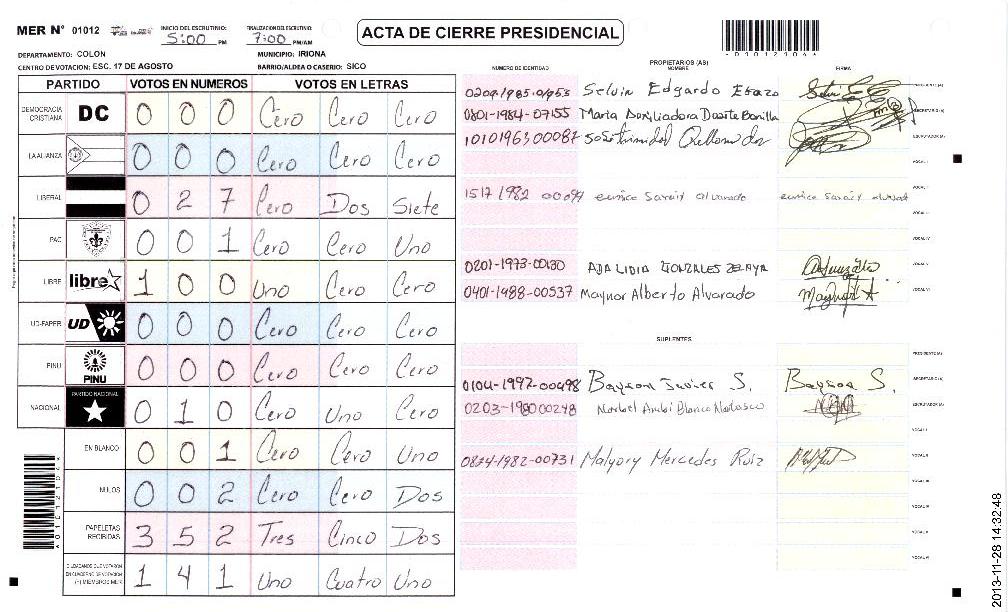 MER N° 01012 INICIO DEL ESCRUTINIO: 5:00 PM FINALIZACION DEL ESCRUTINIO: 7:00 PM/AM ACTA DE CIERRE PRESIDENCIAL
DEPARTAMENTO: COLON MUNICIPIO: IRIONA
CENTRO DE VOTACION: ESC. 17 DE AGOSTO BARRIO/ALDEA O CASERIO: SICO
PARTIDO VOTOS EN NUMEROS VOTOS EN LETRAS
DEMOCRACIA CRISTIANA DC 0 0 0 Cero Cero Cero
LA ALIANZA 0 0 0 Cero Cero Cero
LIBERAL 0 2 7 Cero Dos Siete
PAC 0 0 1 Cero Cero Uno
LIBRE libre 1 0 0 Uno Cero Cero
UD-FAPER UD 0 0 0 Cero Cero Cero
PINU PINU 0 0 0 Cero Cero Cero
NACIONAL PARTIDO NACIONAL 0 1 0 Cero Uno Cero
EN BLANCO 0 0 1 Cero Cero Uno
NULOS 0 0 2 Cero Cero Dos
PAPELETAS RECIBIDAS 3 5 2 Tres Cinco Dos
CIUDADANOS QUE VOTARON EN CUADERNO DE VOTACION (+) MIEMBROS MER 1 4 1 Uno Cuatro Uno
PROPIETARIOS (AS)
NUMERO DE IDENTIDAD NOMBRE FIRMA
Selvin Edgardo PRESIDENTE (A)
0801-1984-07155 Maria Bonilla SECRETARIO (A)
1010196300087 ESCRUTADOR (A)
VOCAL I
1517 1982 eunice Saraiy alvarado eunice Saraiy VOCAL II
VOCAL III
VOCAL IV
0201-1973-00130 ADA LIDIA GONZALES ZELAYA VOCAL V
0401-1988-00537 Maynor Alberto Alvarado VOCAL VI
SUPLENTES
PRESIDENTE (A)
0104-1997-00498 Bayson Javier S. Bayson S. SECRETARIO (A)
0203-1980 00248 Blanco ESCRUTADOR (A)
VOCAL I
0824-1982-00731 Malyory Mercedes Ruiz VOCAL II
VOCAL III
VOCAL IV
VOCAL V
VOCAL VI
2013-11-28 14:32:48